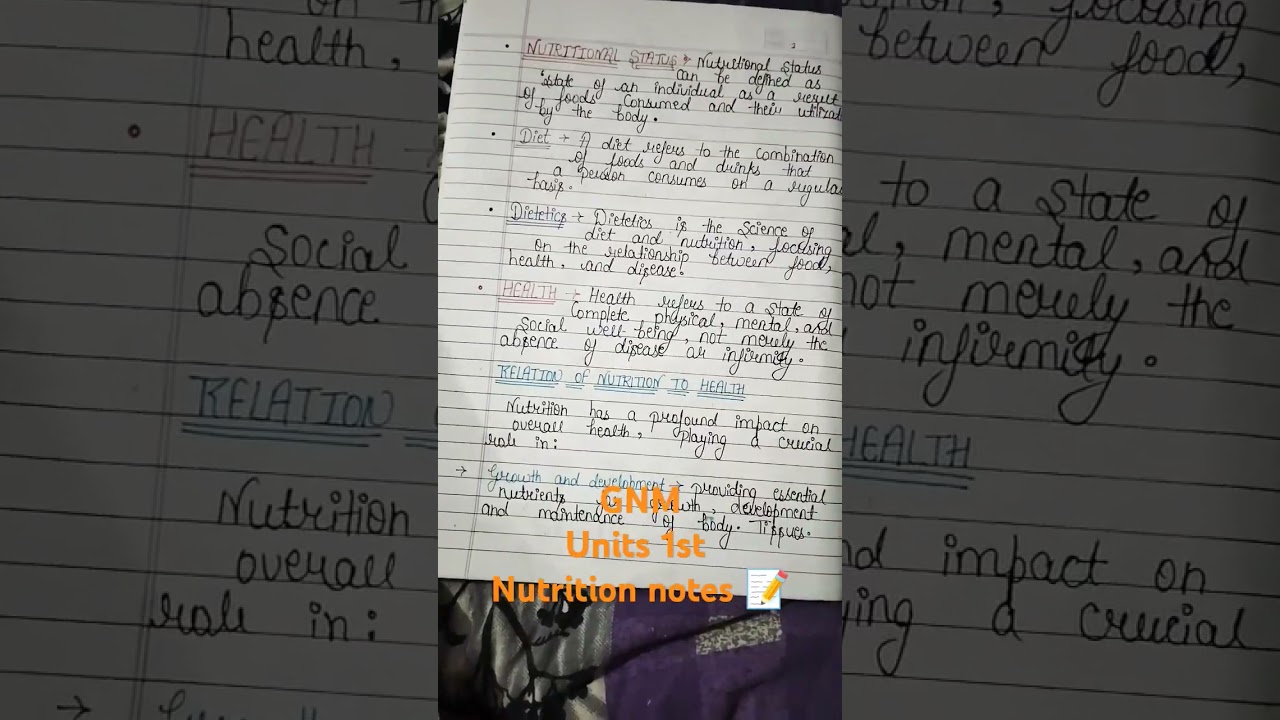 2
• NUTRITIONAL STATUS → Nutritional status
can be defined as
'state of an individual as a result
of foods consumed and their utilizat
by the body.
• Diet → A diet refers to the combination
of foods and drinks that
a person consumes on a regular
basis.
• Dietetics → Dietetics is the science of
diet and nutrition, focusing
on the relationship between food,
health, and disease.
• HEALTH :- Health refers to a state of
complete physical, mental, and
social well-being, not merely the
absence of disease or infirmity.
RELATION OF NUTRITION TO HEALTH
Nutrition has a profound impact on
overall health, playing a crucial
role in:
→ Growth and development → providing essential
nutrients for growth, development
and maintenance of body. Tissues.
GNM
Units 1st
Nutrition notes 📝
focusing
health, between food,
• HEALTH
to a state of
social mental, and
absence not merely the
infirmity.
RELATION HEALTH
Nutrition impact on
overall a crucial
role in:
→